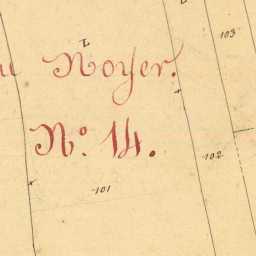 103
Noyer.
N.º 14.
102
101